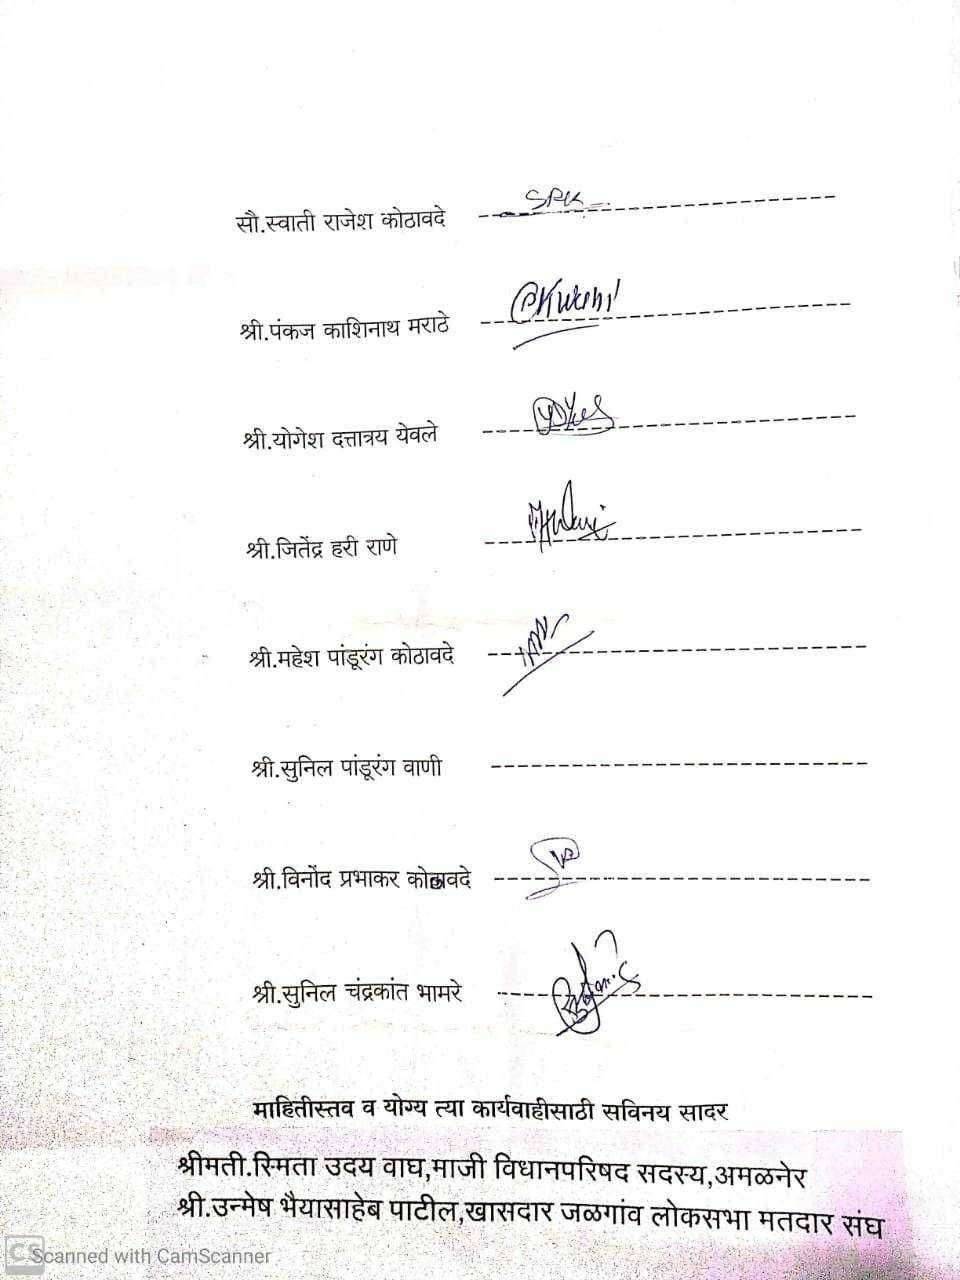 सौ.स्वाती राजेश कोठावदे SPK
श्री.पंकज काशिनाथ मराठे
श्री.योगेश दत्तात्रय येवले
श्री.जितेंद्र हरी राणे
श्री.महेश पांडूरंग कोठावदे
श्री.सुनिल पांडूरंग वाणी
श्री.विनोंद प्रभाकर कोठावदे
श्री.सुनिल चंद्रकांत भामरे
माहितीस्तव व योग्य त्या कार्यवाहीसाठी सविनय सादर
श्रीमती.स्मिता उदय वाघ,माजी विधानपरिषद सदस्य,अमळनेर
श्री.उन्मेष भैयासाहेब पाटील,खासदार जळगांव लोकसभा मतदार संघ
CS Scanned with CamScanner